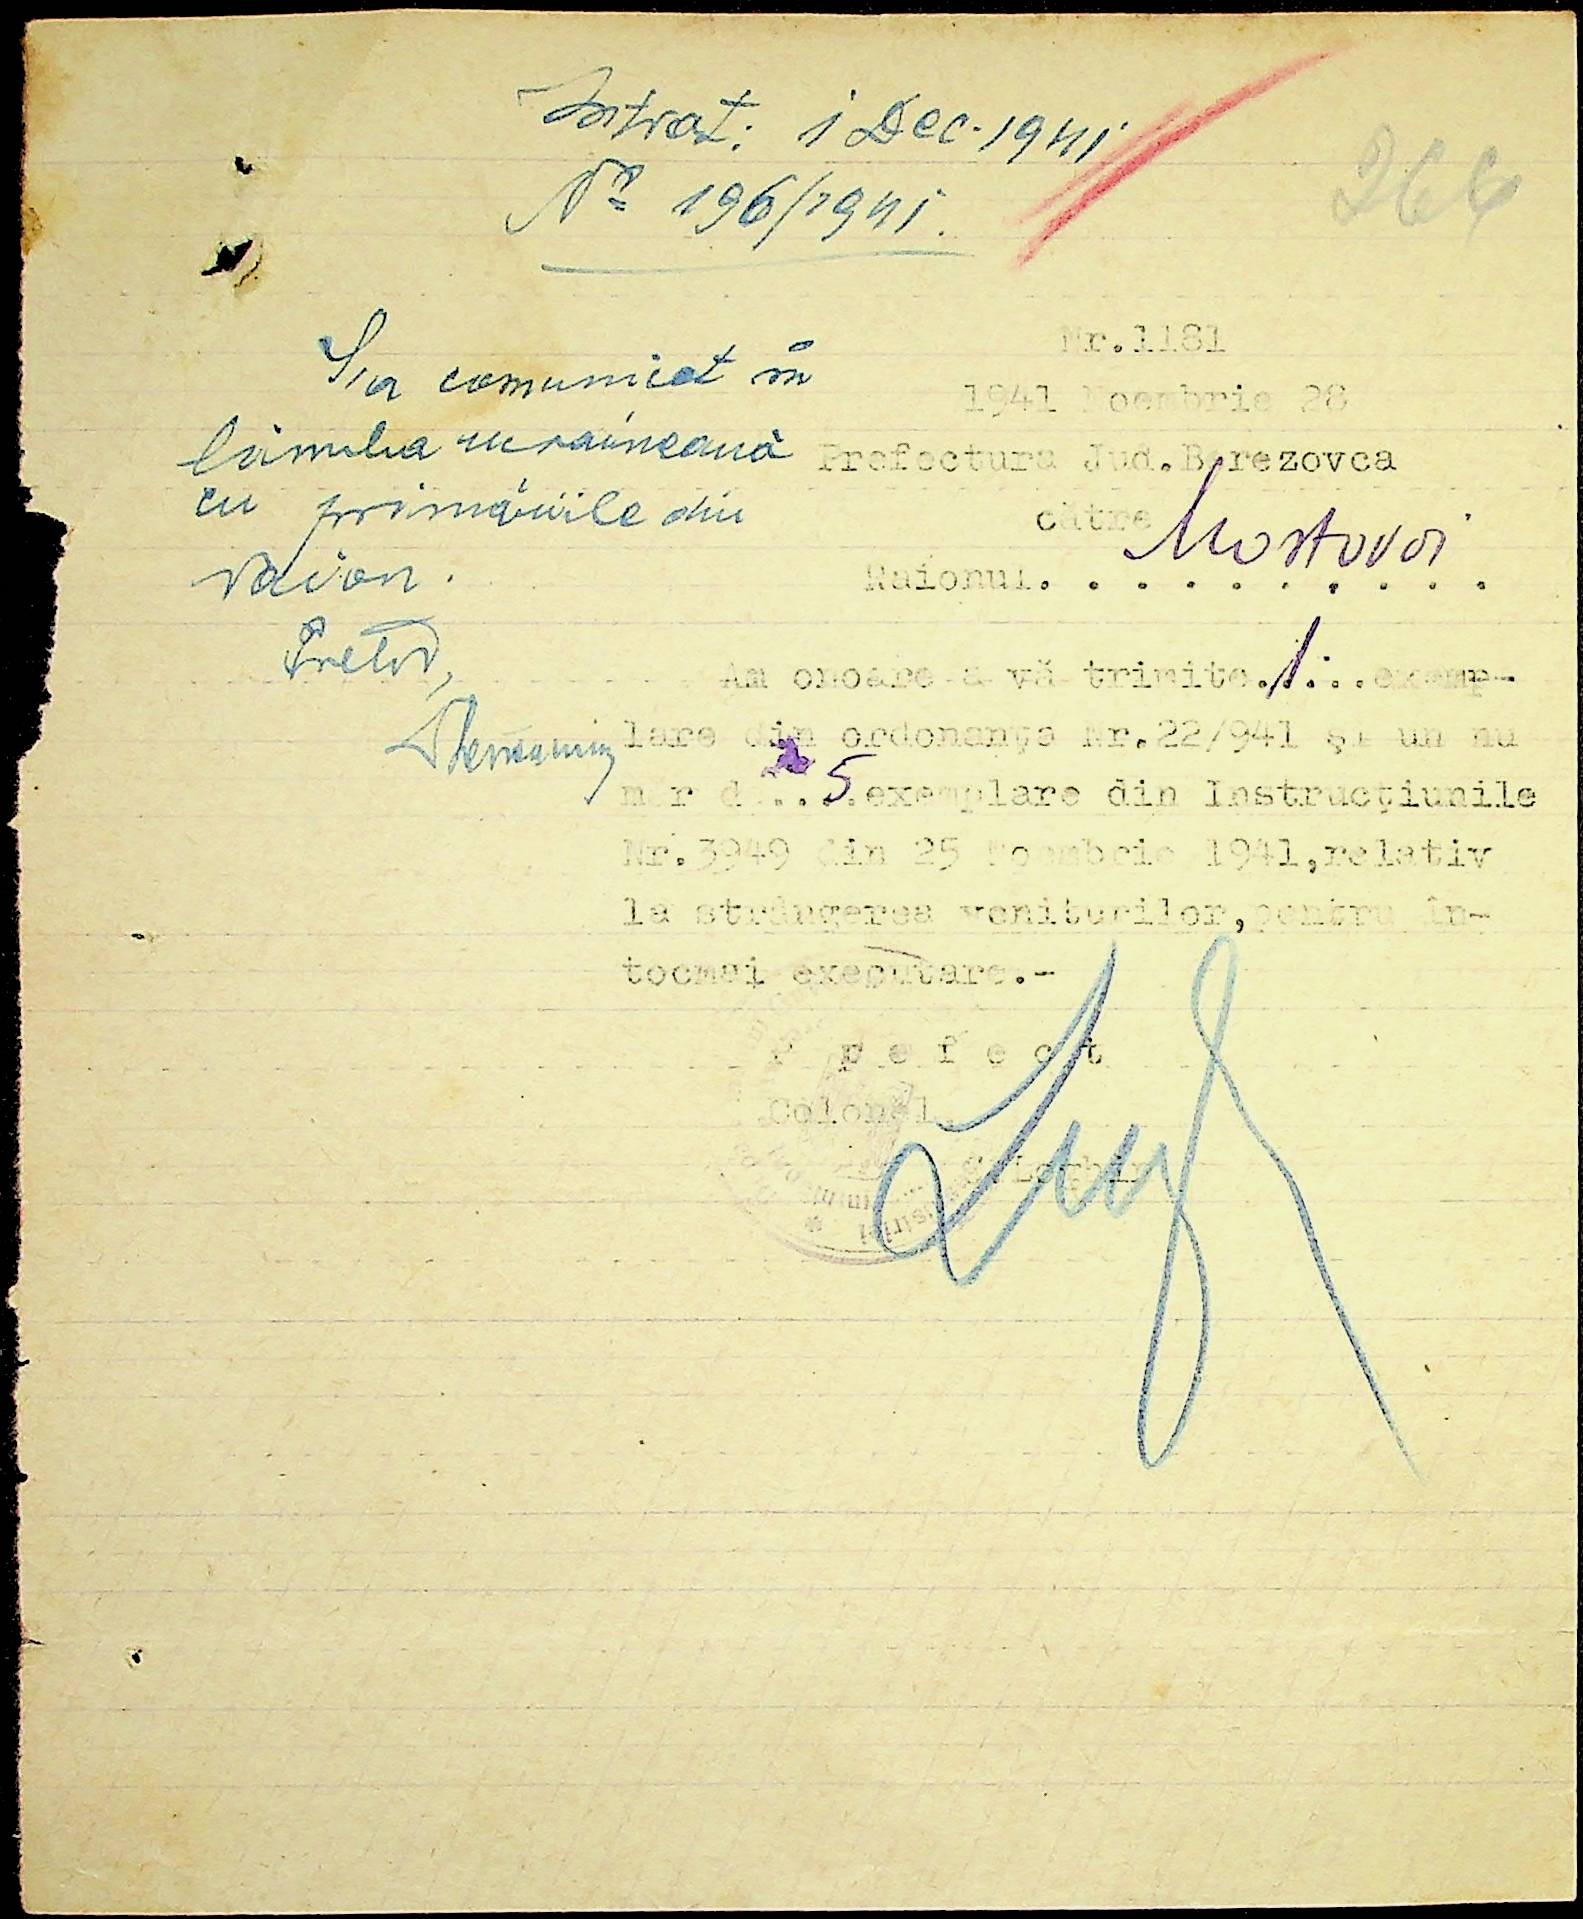 Intrat: 1 Dec. 1941
Nº 196/1941.
266
S'a comunicat în
limba ucraineană
cu primăriile din
raion.
Pretor,
Nr.1181
1941 Noembrie 28
Prefectura Jud.Berezovca
către
Raionul. . . . . . . . . . Mostovoi
Am onoare a vă trimite.1...exemp-
lare din ordonanţa Nr.22/941 şi un nu
măr de...5.exemplare din Instrucţiunile
Nr.3949 din 25 Noembrie 1941,relativ
la strângerea veniturilor,pentru în-
tocmai executare.-
P p e f e c t
Colonel,